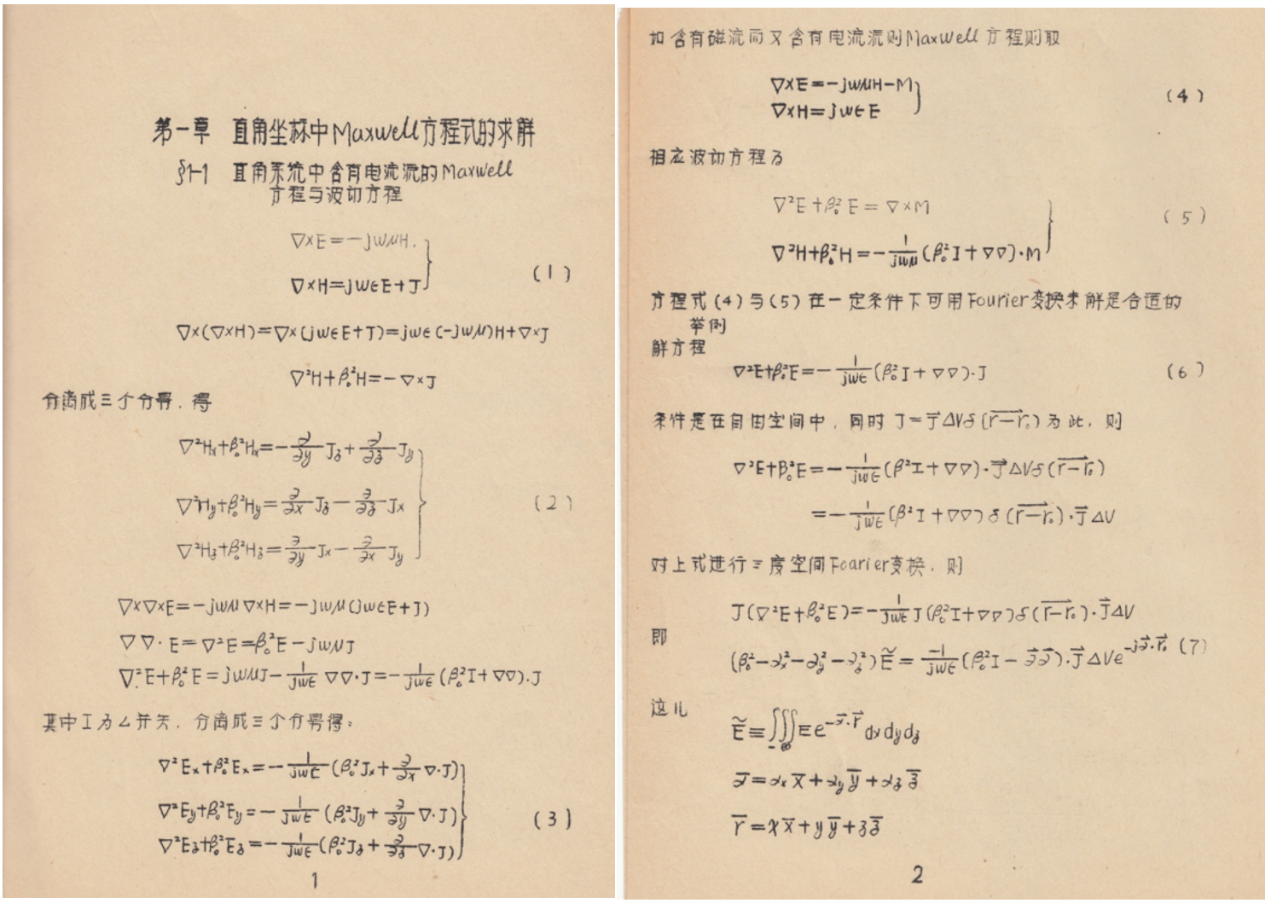 第一章 直角坐标中Maxwell方程式的求解
§1-1 直角系统中含有电流源的Maxwell
方程与波动方程
∇×E=-jωμH.
∇×H=jωϵE+J
(1)
∇×(∇×H)=∇×(jωϵE+J)=jωϵ(-jωμ)H+∇×J
∇²H+β₀²H=-∇×J
分离成三个分量.得
∇²Hx+β₀²Hx=-∂/∂y Jz+∂/∂z Jy
∇²Hy+β₀²Hy=∂/∂x Jz-∂/∂z Jx
(2)
∇²Hz+β₀²Hz=∂/∂y Jx-∂/∂x Jy
∇×∇×E=-jωμ∇×H=-jωμ(jωϵE+J)
∇∇·E=∇²E=β₀²E-jωμJ
∇²E+β₀²E=jωμJ-1/jωϵ ∇∇·J=-1/jωϵ (β₀²I+∇∇).J
其中I为∠并矢.分离成三个分量得:
∇²Ex+β₀²Ex=-1/jωϵ (β₀²Jx+∂/∂x ∇·J)
∇²Ey+β₀²Ey=-1/jωϵ (β₀²Jy+∂/∂y ∇·J)
(3)
∇²Ez+β₀²Ez=-1/jωϵ (β₀²Jz+∂/∂z ∇·J)
1
如含有磁流而又含有电流源则Maxwell方程则取
∇×E=-jωμH-M
∇×H=jωϵE
(4)
相应波动方程为
∇²E+β₀²E=∇×M
(5)
∇²H+β₀²H=-1/jωμ (β₀²I+∇∇)·M
方程式(4)与(5)在一定条件下可用Fourier变换求解是合适的
举例
解方程
∇²E+β₀²E=-1/jωϵ (β₀²I+∇∇).J
(6)
条件是在自由空间中,同时J=J⃗ΔVδ(r-r₀)为此,则
∇²E+β₀²E=-1/jωϵ (β²I+∇∇)·J⃗ΔVδ(r-r₀)
=-1/jωϵ (β²I+∇∇)δ(r-r₀)·J⃗ΔV
对上式进行三度空间Foarier变换.则
J(∇²E+β₀²E)=-1/jωϵ J(β₀²I+∇∇)δ(r-r₀)·J⃗ΔV
即
(β₀²-αx²-αy²-αz²)Ẽ=-1/jωϵ (β₀²I-α⃗α⃗)·J⃗ΔVe^(-jα⃗·r⃗₀) (7)
这儿
Ẽ≡∭_(-∞) E e^(-α⃗·r⃗) dx dy dz
α̅=αx x̅+αy y̅+αz z̅
r̅=x x̅+y y̅+z z̅
2